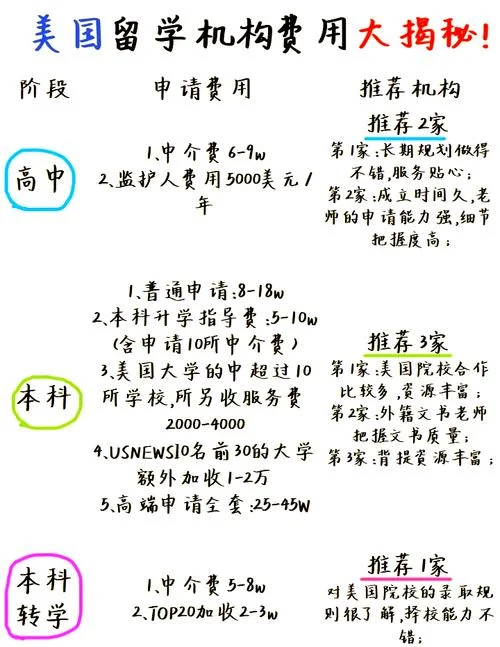 美国留学机构费用大揭秘!
阶段 申请费用 推荐机构
高中
1、中介费6-9w
2、监护人费用5000美元/
年
推荐2家
第1家:长期规划做得
不错,服务贴心;
第2家:成立时间久,老
师的申请能力强,细节
把握度高;
本科
1、普通申请:8-18w
2、本科升学指导费:5-10w
(含申请10所中介费)
3、美国大学的申超过10
所学校,所另收服务费
2000-4000
4、USNEWS10名前30的大学
额外加收1-2万
5、高端申请全套:25-45W
推荐3家
第1家:美国院校合作
比较多,资源丰富;
第2家:外籍文书老师
把握文书质量;
第3家:背提资源丰富;
本科
转学
1、中介费5-8w
2、TOP20加收2-3w
推荐1家
对美国院校的录取规
则很了解,择校能力不
错;